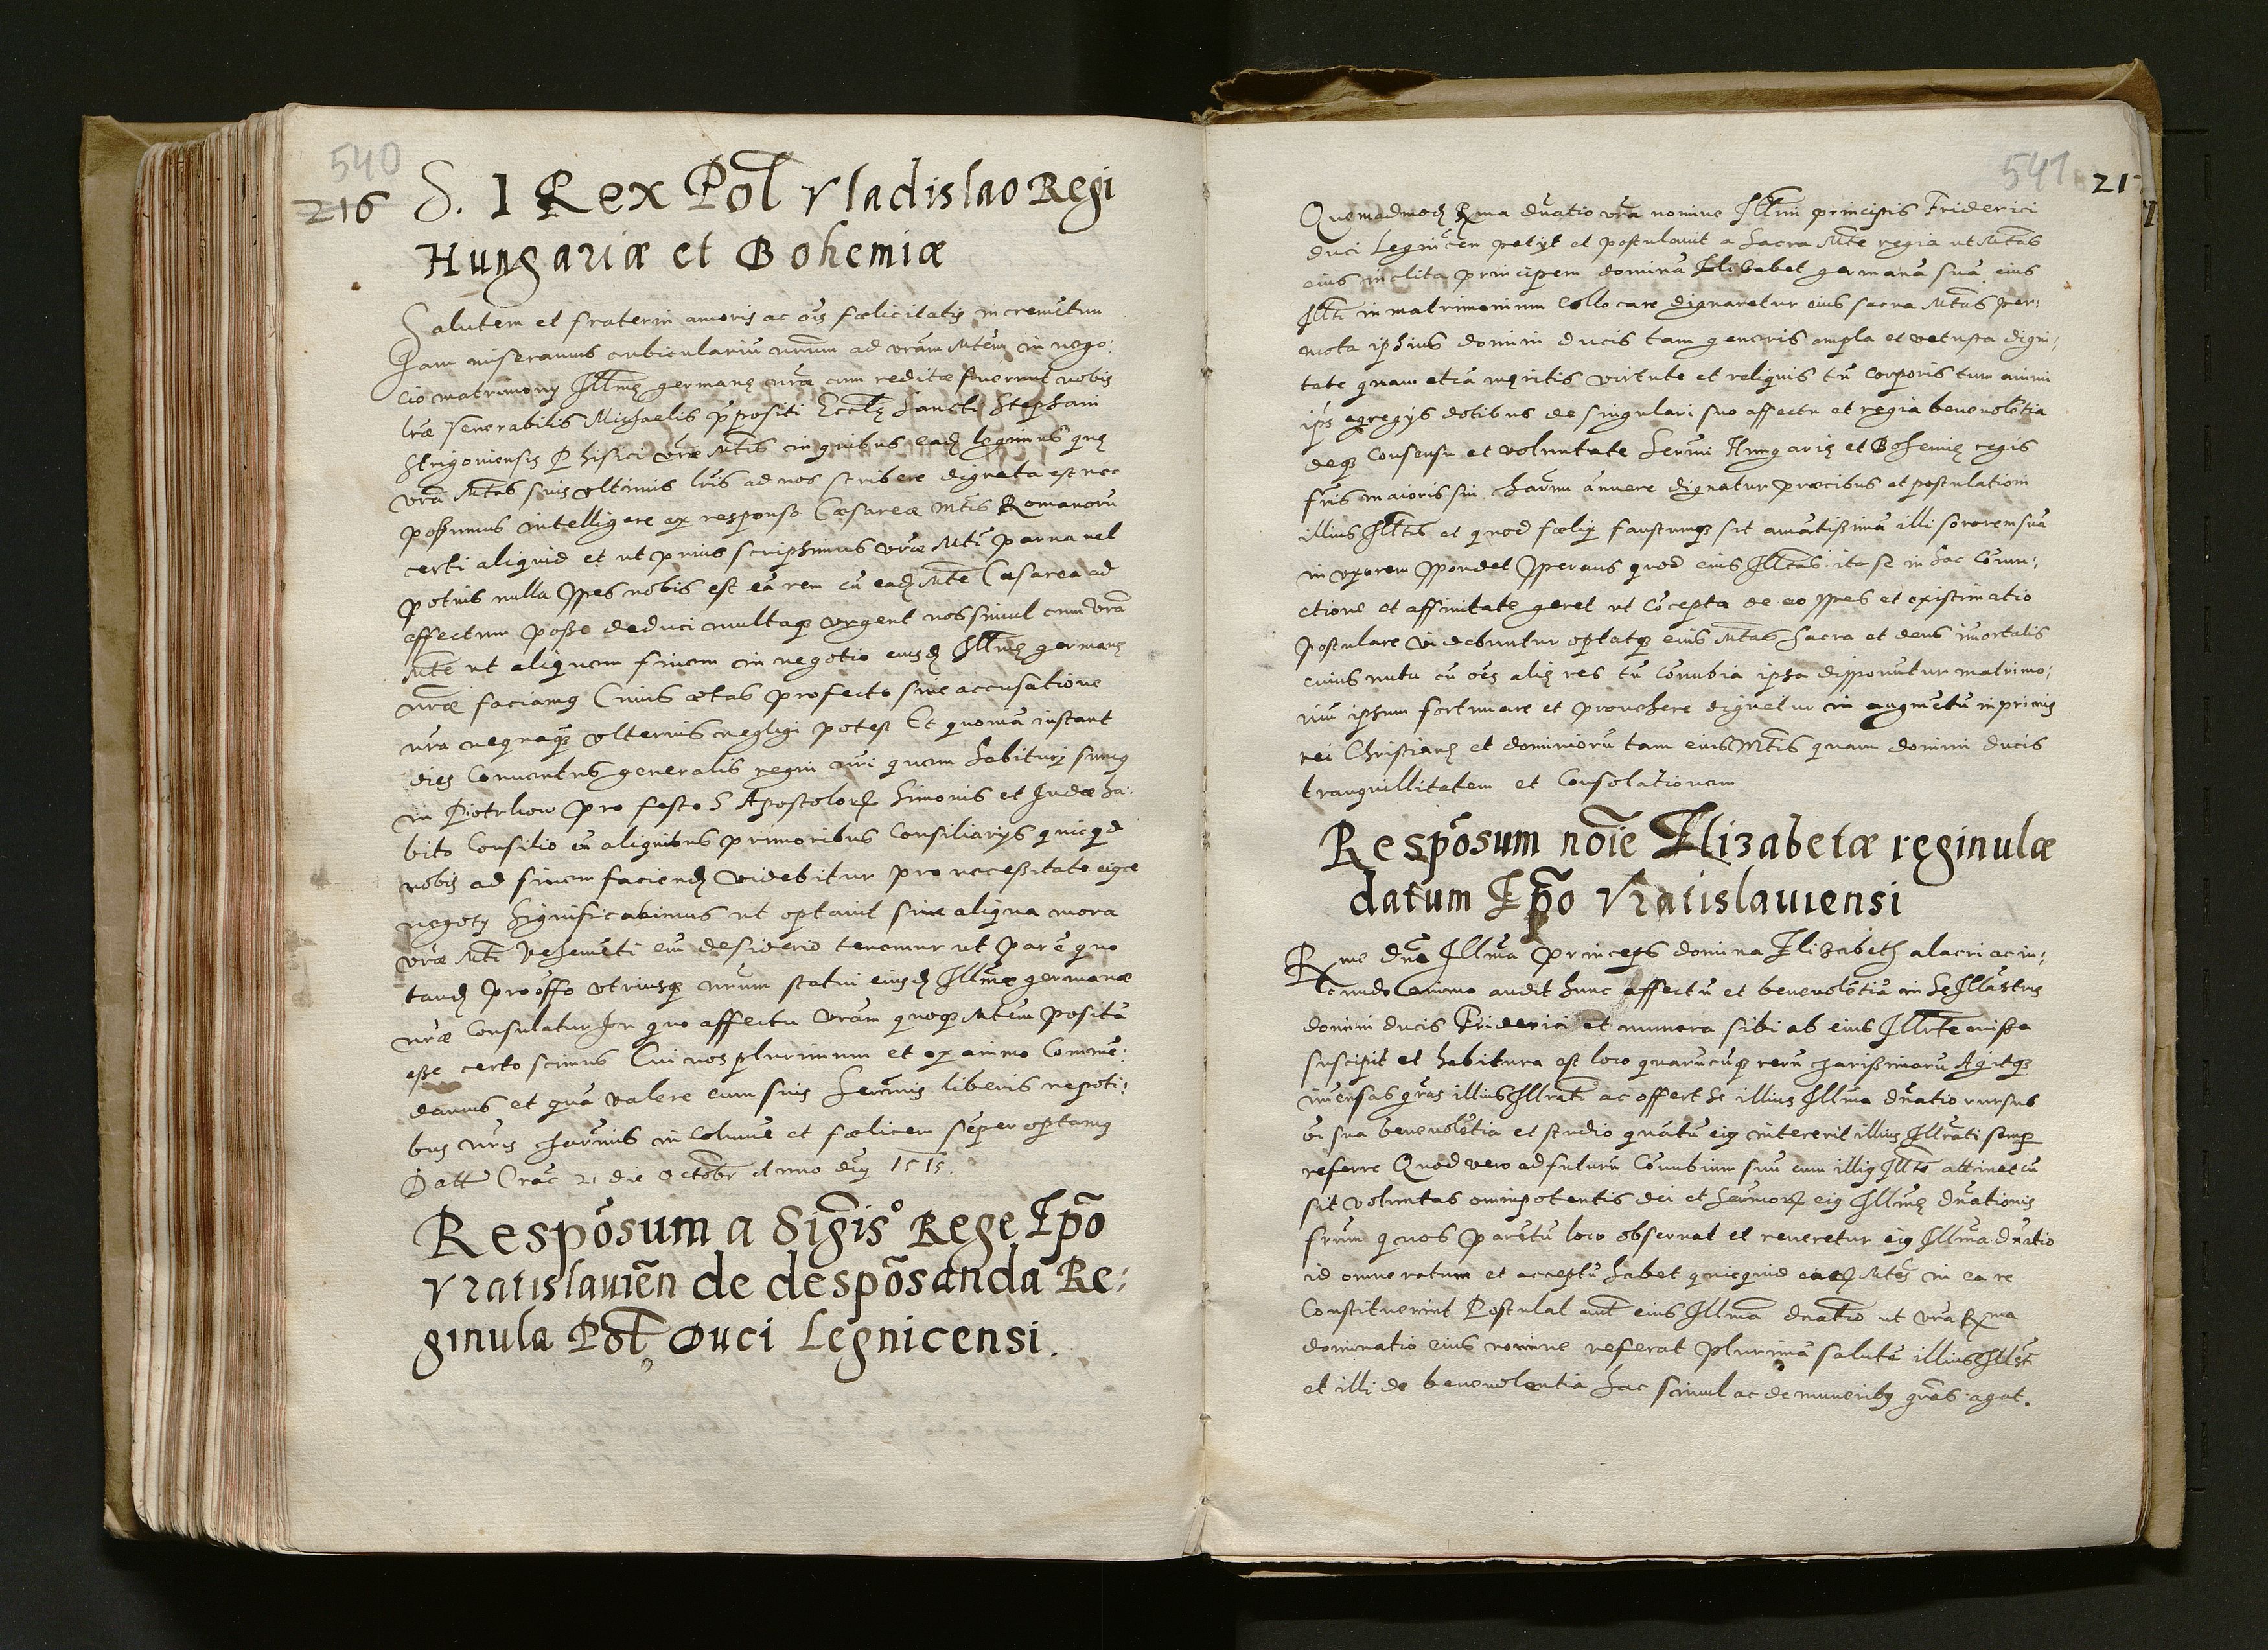 540
216 S. I Rex Pol Vladislao Regi
Hungariæ et Bohemiæ
Salutem et fraterni amoris ac ōis fœlicitatis incremētum
Jam miseramus cubiculariū nrum ad vrām Mtēm in nego:
cio matrimony Illmę germanę nrae cum reditæ fuerunt nobis
lræ Venerabilis Michaelis ppositi Ecclę Sancti Stephani
Strigoniensis Phisici vræ Mtis in quibus eadę legimus quę
vrā Mtas suis vltimis lris ad nos scribere dignata est nec
possumus intelligere ex responso Cæsareæ Mtis Romanorū
certi aliquid et ut prius scripsimus vræ Mti parua vel
potius nulla spes nobis est eā rem cū eadę Mte Cæsarea ad
effectum posse deduci multaqȝ vrgent nos simul cum vrā
Mte ut aliquem finem in negotio eiusdę Illmę germanę
nræ faciamꝰ Cuius ætas profecto sine accusatione
nrā nequaqȝ vlterius negligi potest Et quoniā instant
dies Conuentus generalis regni nri quem habituri sumꝰ
in Piotrkow pro festo S Apostolorū Simonis et Judæ ha:
bito Consilio cū aliquibus primoribus Consiliarys quicqd
nobis ad finem faciendę videbitur pro necessitate eiꝰce
negoty significabimus ut optauit sine aliqua mora
vræ Mti Vehemēti eiꝰ desiderio tenemur ut parē quo
tandę pro offo vtriusqȝ nrum statui eiusdę Illmæ germanæ
nræ Consulatur In quo affectu vrām quoqȝ Mtem positā
esse certo scimus Cui nos plurimum et ex animo Commē:
damus et quā valere cum suis Sermis liberis nepoti:
bus nris charmis incolumē et fœlicem sēper optamꝰ
Datt Crac 21 die Octobr Anno dny 1515.
Respōsum a Sigiso Rege Epō
Vratislauiēn de despōsanda Re:
ginula Pol Duci Legnicensi.
541 217
Quemadmodę Rma dnatio vrā nomine Illmi principis Friderici
duci Legnicen petyt et postulauit a Sacra Mte regia ut Mtas
eius inclita principem dominā Elizabet germanā suā eius
Illti in matrimonium Collocare dignaretur eius sacra Mtas per:
mota ipsius domini ducis tam generis ampla et vetusta digni:
tate quam etiā meritis virtute et reliquis tū corporis tum animi
ipsꝰ egregys dotibus de singulari suo affectu et regia beneuolētia
deqȝ Consensu et voluntate Sermi Hungarię et Bohemię regis
fris maioris sui charmi annuere dignatur præcibus et postulationi
illius Illtis et quod fœlix faustumqȝ sit amātissimā illi sororem suā
in vxorem spondet sperans quod eius Illtas ita se in hac Coniu:
ctione et affinitate geret ut cōcepta de eo spes et existimatio
postulare videbuntur optatqȝ eius Mtas Sacra et deus imortalis
cuius nutu cū oēs alię res tū Conubia ipsa disponūtur matrimo:
niū ipsum fortunare et prouehere dignetur in augmētū inprimis
rei Christianę et dominiorū tam eius Mtis quam domini ducis
tranquillitatem et Consolationem
Respōsum noīe Elizabetæ reginulæ
datum Epō Vratislauiensi
Rme dne Illma Princeps domina Elizabeth alacri ac iu:
cundo animo audit hunc affectū et beneuolētiā in se Illustris
domini ducis Friderici et munera sibi ab eius Illrte missa
suscipit et habitura est loco quarūcūqȝ rerū charissimarū Agitqȝ
imensas gras illius Illrati ac offert se illius Illma dnatio rursus
ōi sua beneuolētia et studio quātū eiꝰ intererit illius Illrati semꝑ
referre Quod vero ad futurū Conubium suū cum illiꝰ Illte attinet cū
sit voluntas omnipotentis dei et Sermorū eiꝰ Illmę dnationis
frum quos parētū loco obseruat et reueretur eiꝰ Illma dnatio
id omne ratum et acceptū habet quicquid eaedę Mtes in ea re
Constituerint Postulat aut eius Illma dnatio ut vra Rma
dominatio eius nomine referat plurimā salutē illius Illsti
et illi de beneuolentia hac simul ac de muneribꝰ gras agat.